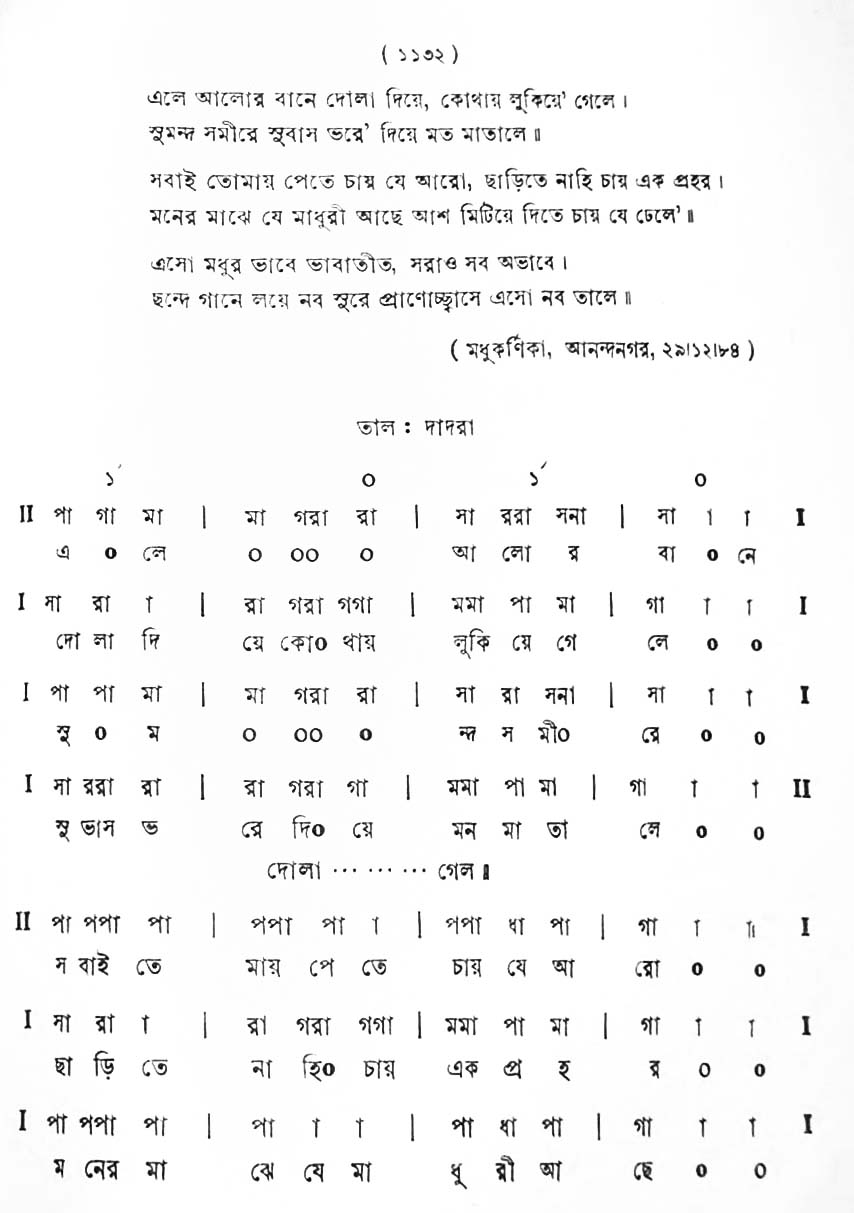 ( ১১৩২ )
এলে আলোর বানে দোলা দিয়ে, কোথায় লুকিয়ে' গেলে।
সুমন্দ সমীরে সুবাস ভরে' দিয়ে মত মাতালে॥
সবাই তোমায় পেতে চায় যে আরো, ছাড়িতে নাহি চায় এক প্রহর।
মনের মাঝে যে মাধুরী আছে আশ মিটিয়ে দিতে চায় যে ঢেলে'॥
এসো মধুর ভাবে ভাবাতীত, সরাও সব অভাবে।
ছন্দে গানে লয়ে নব সুরে প্রাণোচ্ছ্বাসে এসো নব তালে॥
( মধুকর্ণিকা, আনন্দনগর, ২৯।১২।৮৪ )
তাল : দাদরা
১´ ০ ১´ ০
II পা গা মা | মা গরা রা | সা ররা সনা | সা া া I
এ ০ লে ০ ০০ ০ আ লো র বা ০ নে
I সা রা া | রা গরা গগা | মমা পা মা | গা া া I
দো লা দি য়ে কো০ থায় লুকি য়ে গে লে ০ ০
I পা পা মা | মা গরা রা | সা রা সনা | সা া া I
সু ০ ম ০ ০০ ০ ন্দ স মী০ রে ০ ০
I সা ররা রা | রা গরা গা | মমা পা মা | গা া া II
সু ভাস ভ রে দি০ য়ে মন মা তা লে ০ ০
দোলা ... ... ... গেল॥
II পা পপা পা | পপা পা া | পপা ধা পা | গা া া। I
স বাই তে মায় পে তে চায় যে আ রো ০ ০
I সা রা া | রা গরা গগা | মমা পা মা | গা া া I
ছা ড়ি তে না হি০ চায় এক প্র হ র ০ ০
I পা পপা পা | পা া া | পা ধা পা | গা া া I
ম নের মা ঝে যে মা ধু রী আ ছে ০ ০